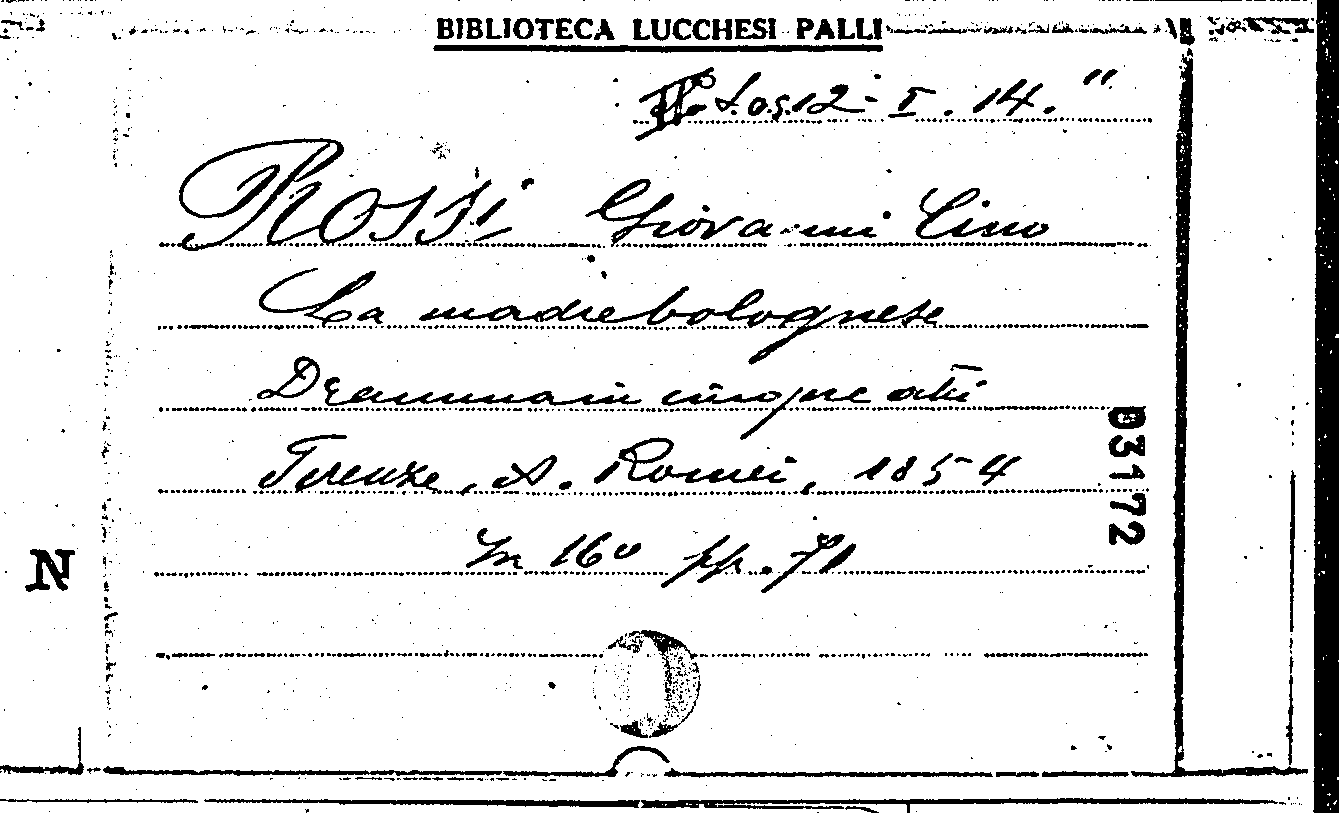 BIBLIOTECA LUCCHESI PALLI
I. 14."
ROSSI Giovanni Cino
La madre bolognese
Dramma in cinque atti
Firenze, A. Romei, 1854
In 16º pp. 71
D3172
N